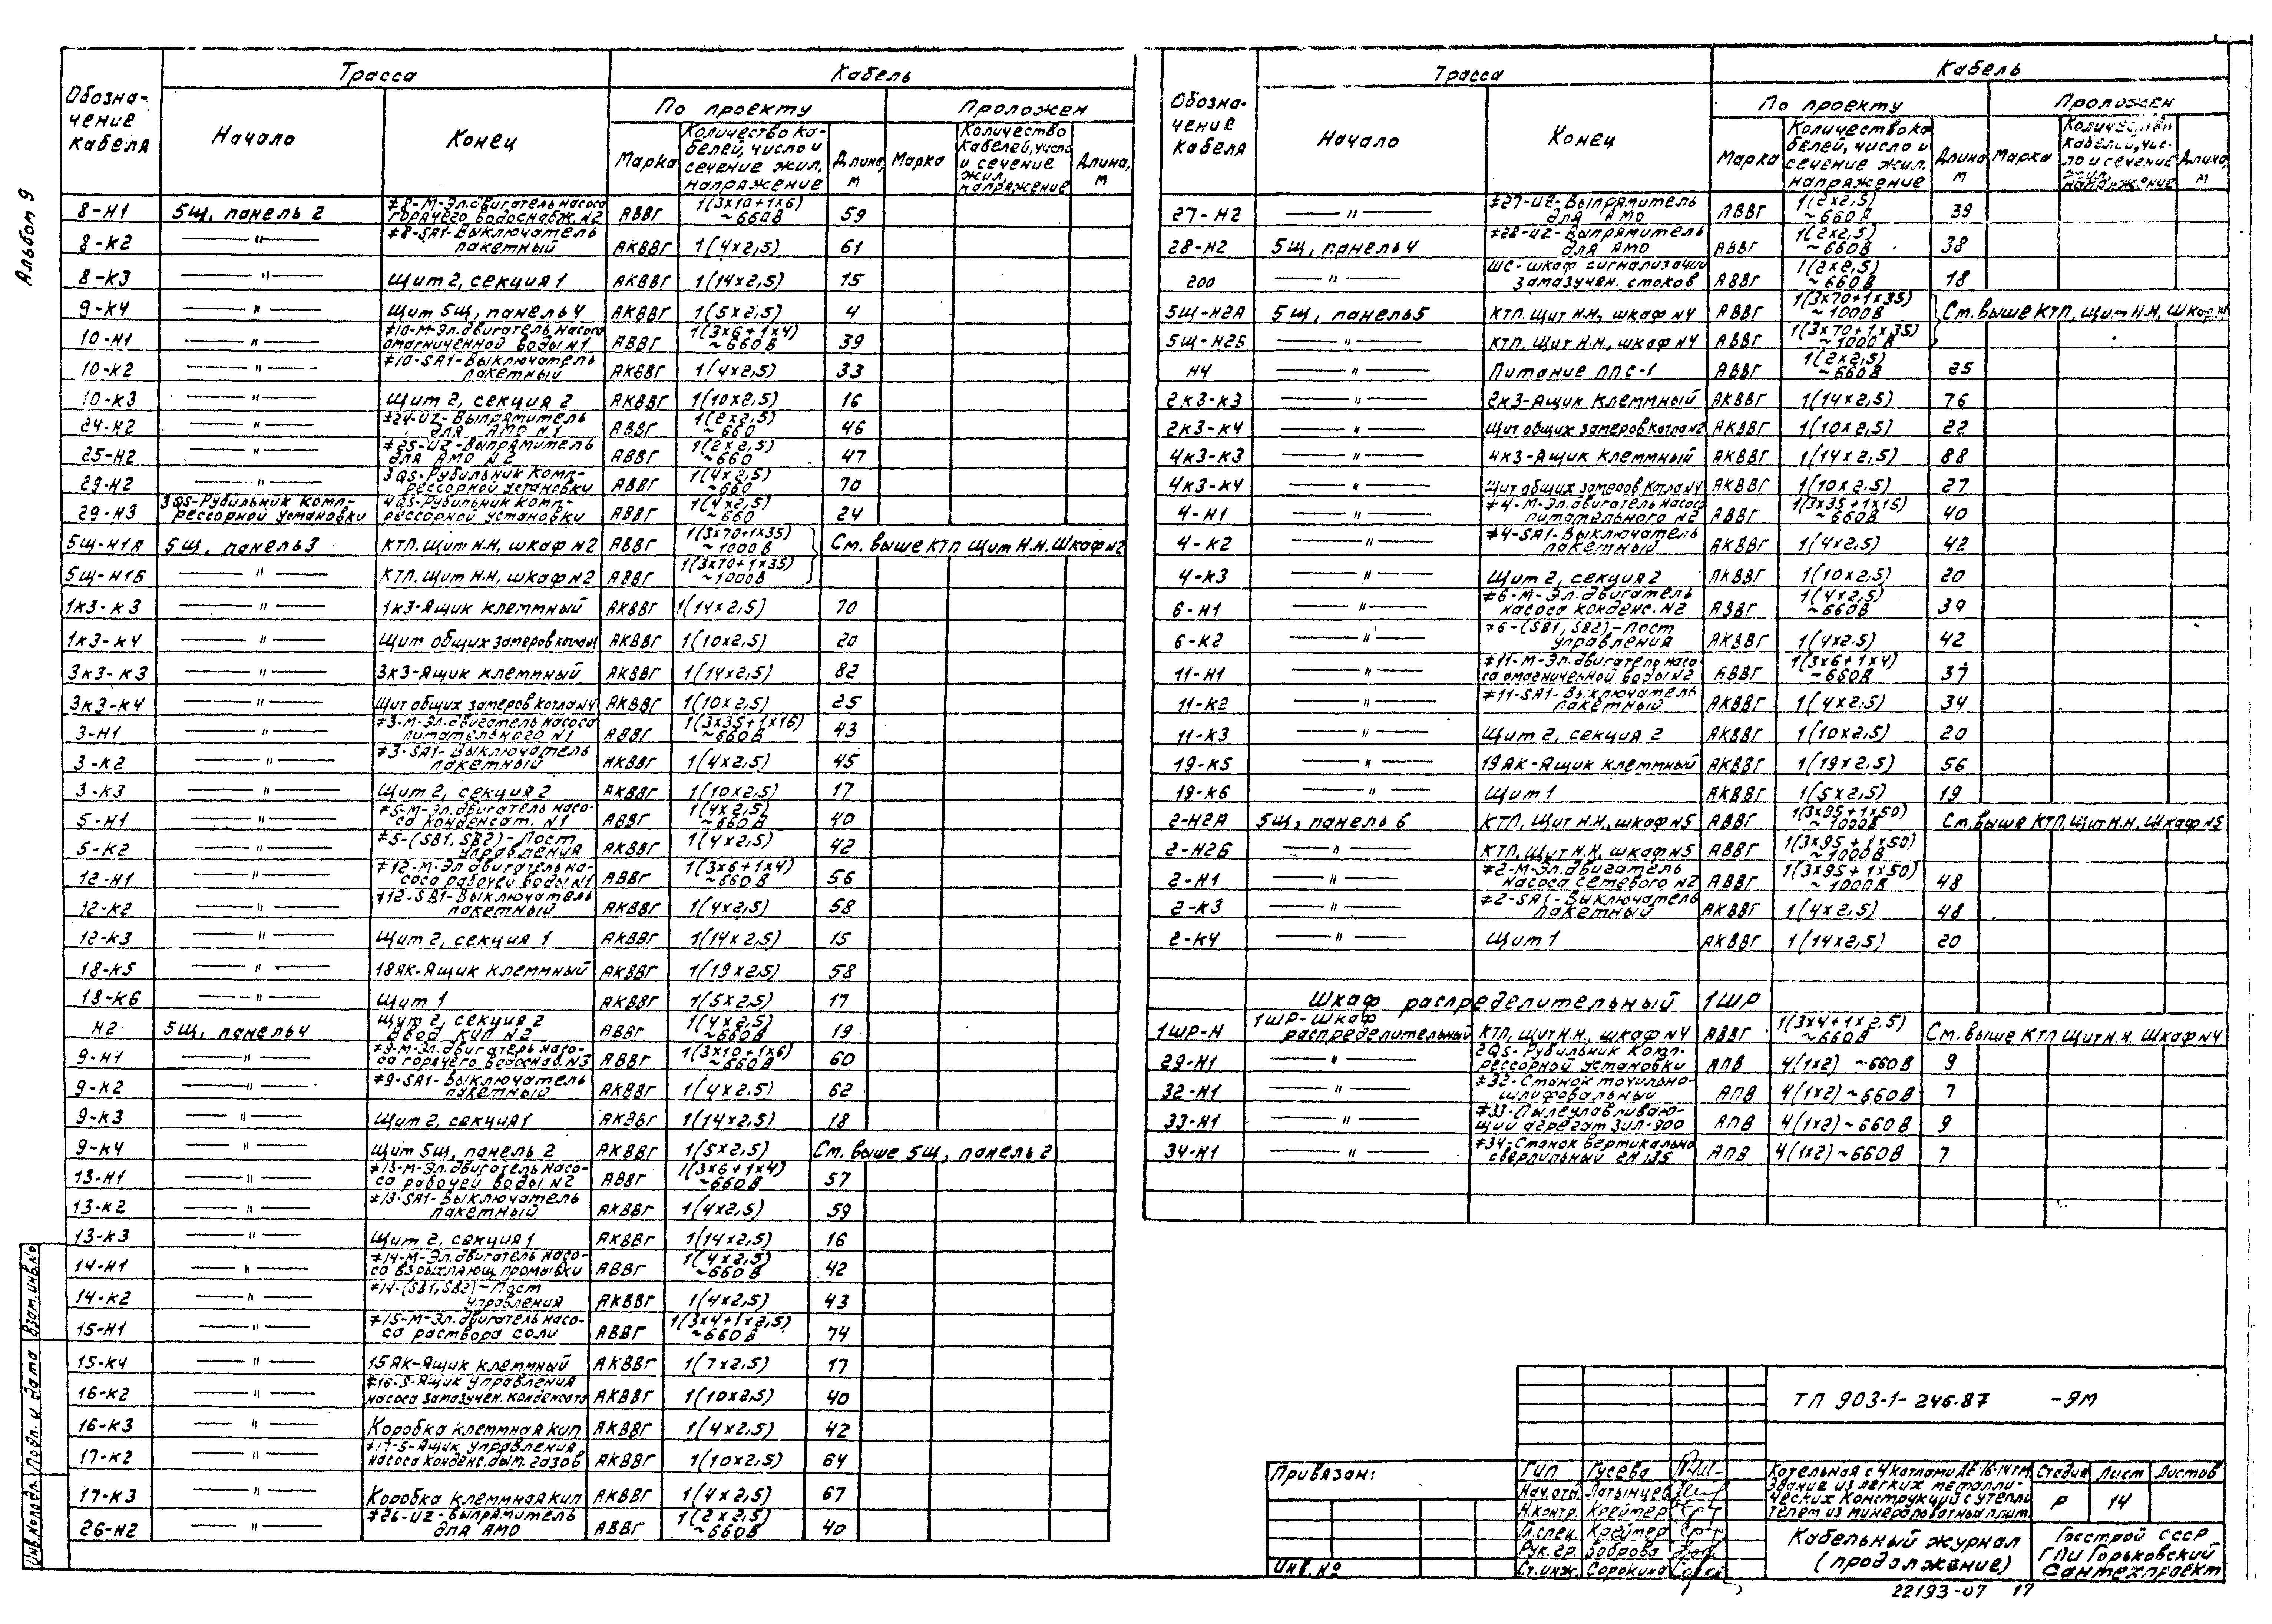 Альбом 9
Обозна-
чение
кабеля
Трасса
Кабель
Начало
Конец
По проекту
Проложен
Марка
Количество ка-
белей, число и
сечение жил,
напряжение
Длина,
м
Марка
Количество
кабелей, число
и сечение
жил,
напряжение
Длина,
м
8-Н1 5Щ, панель 2 #8-М-Эл.двигатель насоса горячего водоснабж. N2 АВВГ 1(3х10+1х6) ~660В 59
8-К2 —"— #8-SA1-Выключатель пакетный АКВВГ 1(4х2,5) 61
8-К3 —"— Щит 2, секция 1 АКВВГ 1(14х2,5) 15
9-К4 —"— Щит 5Щ, панель 4 АКВВГ 1(5х2,5) 4
10-Н1 —"— #10-М-Эл.двигатель насоса омагниченной воды N1 АВВГ 1(3х6+1х4) ~660В 39
10-К2 —"— #10-SA1-Выключатель пакетный АКВВГ 1(4х2,5) 33
10-К3 —"— Щит 2, секция 2 АКВВГ 1(10х2,5) 16
24-Н2 —"— #24-UZ-Выпрямитель для АМО N1 АВВГ 1(2х2,5) ~660 46
25-Н2 —"— #25-UZ-Выпрямитель для АМО N2 АВВГ 1(2х2,5) ~660 47
29-Н2 —"— 3QS-Рубильник комп-рессорной установки АВВГ 1(4х2,5) ~660 70
29-Н3 3QS-Рубильник комп-рессорной установки 4QS-Рубильник комп-рессорной установки АВВГ 1(4х2,5) ~660 24
5Щ-Н1А 5Щ, панель 3 КТП. Щит Н.Н, шкаф N2 АВВГ 1(3х70+1х35) ~1000В См. выше КТП Щит Н.Н. Шкаф N2
5Щ-Н1Б —"— КТП. Щит Н.Н, шкаф N2 АВВГ 1(3х70+1х35) ~1000В
1К3-К3 —"— 1К3-Ящик клеммный АКВВГ 1(14х2,5) 70
1К3-К4 —"— Щит общих замеров котла N1 АКВВГ 1(10х2,5) 20
3К3-К3 —"— 3К3-Ящик клеммный АКВВГ 1(14х2,5) 82
3К3-К4 —"— Щит общих замеров котла N4 АКВВГ 1(10х2,5) 25
3-Н1 —"— #3-М-Эл.двигатель насоса питательного N1 АВВГ 1(3х35+1х16) ~660В 43
3-К2 —"— #3-SA1-Выключатель пакетный АКВВГ 1(4х2,5) 45
3-К3 —"— Щит 2, секция 2 АКВВГ 1(10х2,5) 17
5-Н1 —"— #5-М-Эл.двигатель насо-са конденсат. N1 АВВГ 1(4х2,5) ~660В 40
5-К2 —"— #5-(SB1, SB2)-Пост управления АКВВГ 1(4х2,5) 42
12-Н1 —"— #12-М-Эл двигатель на-соса рабочей воды N1 АВВГ 1(3х6+1х4) ~660В 56
12-К2 —"— #12-SB1-Выключатель пакетный АКВВГ 1(4х2,5) 58
12-К3 —"— Щит 2, секция 1 АКВВГ 1(14х2,5) 15
18-К5 —"— 18АК-Ящик клеммный АКВВГ 1(19х2,5) 58
18-К6 —"— Щит 1 АКВВГ 1(5х2,5) 17
Н2 5Щ, панель 4 Щит 2, секция 2 Ввод КИП N2 АВВГ 1(4х2,5) ~660В 19
9-Н1 —"— #9-М-Эл.двигатель насо-са горячего водоснаб. N3 АВВГ 1(3х10+1х6) ~660В 60
9-К2 —"— #9-SA1-Выключатель пакетный АКВВГ 1(4х2,5) 62
9-К3 —"— Щит 2, секция 1 АКВВГ 1(14х2,5) 18
9-К4 —"— Щит 5Щ, панель 2 АКВВГ 1(5х2,5) См. выше 5Щ, панель 2
13-Н1 —"— #13-М-Эл.двигатель насо-са рабочей воды N2 АВВГ 1(3х6+1х4) ~660В 57
13-К2 —"— #13-SA1-Выключатель пакетный АКВВГ 1(4х2,5) 59
13-К3 —"— Щит 2, секция 1 АКВВГ 1(14х2,5) 16
14-Н1 —"— #14-М-Эл.двигатель насо-са взрыхляющ. промывки АВВГ 1(4х2,5) ~660В 42
14-К2 —"— #14-(SB1, SB2)-Пост управления АКВВГ 1(4х2,5) 43
15-Н1 —"— #15-М-Эл.двигатель насо-са раствора соли АВВГ 1(3х4+1х2,5) ~660В 74
15-К4 —"— 15АК-Ящик клеммный АКВВГ 1(7х2,5) 17
16-К2 —"— #16-S-Ящик управления насоса замазучен. конденсата АКВВГ 1(10х2,5) 40
16-К3 —"— Коробка клеммная КИП АКВВГ 1(4х2,5) 42
17-К2 —"— #17-S-Ящик управления насоса конденс. дым. газов АКВВГ 1(10х2,5) 64
17-К3 —"— Коробка клеммная КИП АКВВГ 1(4х2,5) 67
26-Н2 —"— #26-UZ-Выпрямитель для АМО АВВГ 1(2х2,5) ~660В 40
Обозна-
чение
кабеля
Трасса
Кабель
Начало
Конец
По проекту
Проложен
Марка
Количество ка
белей, число и
сечение жил,
напряжение
Длина
м
Марка
Количество
кабелей, чис-
ло и сечение
жил,
напряжение
Длина,
м
27-Н2 —"— #27-UZ-Выпрямитель для АМО АВВГ 1(2х2,5) ~660В 39
28-Н2 5Щ, панель 4 #28-UZ-Выпрямитель для АМО АВВГ 1(2х2,5) ~660В 38
200 —"— ШС-шкаф сигнализации замазучен. стоков АВВГ 1(2х2,5) ~660В 18
5Щ-Н2А 5Щ, панель 5 КТП. Щит Н.Н, шкаф N4 АВВГ 1(3х70+1х35) ~1000В См. выше КТП, Щит Н.Н, Шкаф N4
5Щ-Н2Б —"— КТП. Щит Н.Н, шкаф N4 АВВГ 1(3х70+1х35) ~1000В
Н4 —"— Питание ППС-1 АВВГ 1(2х2,5) ~660В 25
2К3-К3 —"— 2К3-Ящик клеммный АКВВГ 1(14х2,5) 76
2К3-К4 —"— Щит общих замеров котла N2 АКВВГ 1(10х2,5) 22
4К3-К3 —"— 4К3-Ящик клеммный АКВВГ 1(14х2,5) 88
4К3-К4 —"— Щит общих замеров котла N4 АКВВГ 1(10х2,5) 27
4-Н1 —"— #4-М-Эл.двигатель насоса питательного N2 АВВГ 1(3х35+1х16) ~660В 40
4-К2 —"— #4-SA1-Выключатель пакетный АКВВГ 1(4х2,5) 42
4-К3 —"— Щит 2, секция 2 АКВВГ 1(10х2,5) 20
6-Н1 —"— #6-М-Эл.двигатель насоса конденс. N2 АВВГ 1(4х2,5) ~660В 39
6-К2 —"— #6-(SB1, SB2)-Пост управления АКВВГ 1(4х2,5) 42
11-Н1 —"— #11-М-Эл.двигатель насо-са омагниченной воды N2 АВВГ 1(3х6+1х4) ~660В 37
11-К2 —"— #11-SA1-Выключатель пакетный АКВВГ 1(4х2,5) 34
11-К3 —"— Щит 2, секция 2 АКВВГ 1(10х2,5) 20
19-К5 —"— 19АК-Ящик клеммный АКВВГ 1(19х2,5) 56
19-К6 —"— Щит 1 АКВВГ 1(5х2,5) 19
2-Н2А 5Щ, панель 6 КТП, Щит Н.Н, шкаф N5 АВВГ 1(3х95+1х50) ~1000В См. выше КТП, Щит Н.Н. Шкаф N5
2-Н2Б —"— КТП, Щит Н.Н, шкаф N5 АВВГ 1(3х95+1х50) ~1000В
2-Н1 —"— #2-М-Эл.двигатель насоса сетевого N2 АВВГ 1(3х95+1х50) ~1000В 48
2-К3 —"— #2-SA1-Выключатель пакетный АКВВГ 1(4х2,5) 48
2-К4 —"— Щит 1 АКВВГ 1(14х2,5) 20
Шкаф распределительный 1ШР
1ШР-Н 1ШР-шкаф распределительный КТП, Щит Н.Н., шкаф N4 АВВГ 1(3х4+1х2,5) ~660В См. выше КТП Щит Н.Н. Шкаф N4
29-Н1 —"— 2QS-Рубильник комп-рессорной установки АПВ 4(1х2) ~660В 9
32-Н1 —"— #32-Станок точильно-шлифовальный АПВ 4(1х2) ~660В 7
33-Н1 —"— #33-Пылеулавливаю-щий агрегат ЗИЛ-900 АПВ 4(1х2) ~660В 9
34-Н1 —"— #34-Станок вертикально сверлильный 2Н135 АПВ 4(1х2) ~660В 7
Взам. инв. No
Подп. и дата
Инв. No подл.
Привязан:
Инв. No
ГИП Гусева
Нач. отд. Латынцев
Н.контр. Креймер
Гл.спец. Креймер
Рук. гр. Боброва
Ст. инж. Сорокина
ТП 903-1-246.87 -ЭМ
Котельная с 4 котлами ДЕ-16-14ГМ
Здание из легких металли-
ческих конструкций с утепли
телем из минераловатных плит
Стадия Лист Листов
Р 14
Кабельный журнал
(продолжение)
Госстрой СССР
ГПИ Горьковский
Сантехпроект
22193-07 17